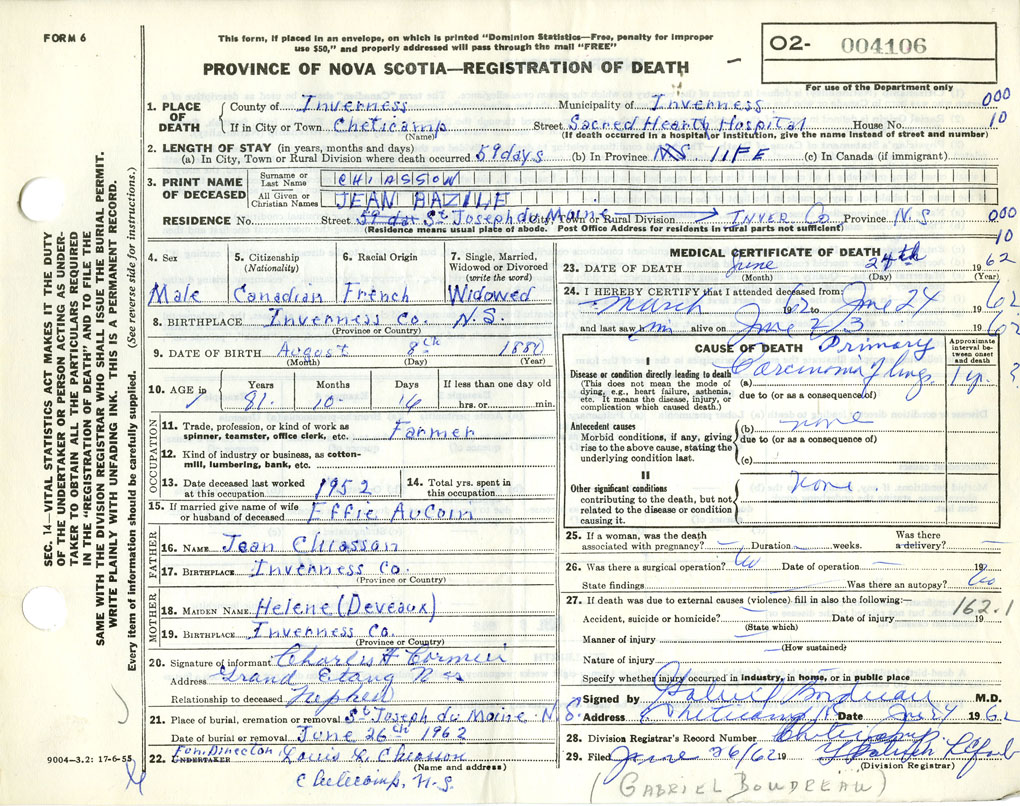 FORM 6
This form, if placed in an envelope, on which is printed "Dominion Statistics—Free, penalty for improper
use $50," and properly addressed will pass through the mail "FREE"
O2- 004106
For use of the Department only
PROVINCE OF NOVA SCOTIA—REGISTRATION OF DEATH
SEC. 14—VITAL STATISTICS ACT MAKES IT THE DUTY
OF THE UNDERTAKER OR PERSON ACTING AS UNDER-
TAKER TO OBTAIN ALL THE PARTICULARS REQUIRED
IN THE "REGISTRATION OF DEATH" AND TO FILE THE
SAME WITH THE DIVISION REGISTRAR WHO SHALL ISSUE THE BURIAL PERMIT.
WRITE PLAINLY WITH UNFADING INK. THIS IS A PERMANENT RECORD.
Every item of information should be carefully supplied. (See reverse side for instructions.)
1. PLACE OF DEATH County of Inverness Municipality of Inverness 000
If in City or Town Cheticamp Street Sacred Heart Hospital House No. 10
(Name) (If death occurred in a hospital or institution, give the name instead of street and number)
2. LENGTH OF STAY (in years, months and days)
(a) In City, Town or Rural Division where death occurred 59 days (b) In Province NS. LIFE (c) In Canada (if immigrant)
3. PRINT NAME OF DECEASED Surname or Last Name CHIASSON
All Given or Christian Names JEAN BAZILE
RESIDENCE No. Street 59 day St Joseph du Moine City, Town or Rural Division → INVER Co Province N.S 000
(Residence means usual place of abode. Post Office Address for residents in rural parts not sufficient) 10
4. Sex Male
5. Citizenship (Nationality) Canadian
6. Racial Origin French
7. Single, Married, Widowed or Divorced (write the word) Widowed
8. BIRTHPLACE Inverness Co. N.S.
(Province or Country)
9. DATE OF BIRTH August 8th 1880
(Month) (Day) (Year)
10. AGE in Years 81 Months 10 Days 16 If less than one day old hrs. or min.
OCCUPATION
11. Trade, profession, or kind of work as
spinner, teamster, office clerk, etc. Farmer
12. Kind of industry or business, as cotton-
mill, lumbering, bank, etc.
13. Date deceased last worked at this occupation 1952 14. Total yrs. spent in this occupation
15. If married give name of wife or husband of deceased Effie AuCoin
FATHER
16. NAME Jean Chiasson
17. BIRTHPLACE Inverness Co.
(Province or Country)
MOTHER
18. MAIDEN NAME Helene (Deveaux)
19. BIRTHPLACE Inverness Co.
(Province or Country)
20. Signature of informant Charles H Cormier
Address Grand Etang N S
Relationship to deceased Nephew
21. Place of burial, cremation or removal St Joseph du Moine N S
Date of burial or removal June 26th 1962
22. UNDERTAKER Fun. Director Louis L. Chiasson
(Name and address)
Cheticamp, N.S.
9004—3.2: 17-6-55
MEDICAL CERTIFICATE OF DEATH
23. DATE OF DEATH June 24th 1962
(Month) (Day) (Year)
24. I HEREBY CERTIFY that I attended deceased from:
March 1962 to June 24 1962
and last saw him alive on June 23 1962
CAUSE OF DEATH Primary
Approximate interval between onset and death
I
Disease or condition directly leading to death (a) Carcinoma of lungs. 1 yr. ?
(This does not mean the mode of dying, e.g., heart failure, asthenia, etc. It means the disease, injury, or complication which caused death.)
due to (or as a consequence of)
Antecedent causes (b) none
Morbid conditions, if any, giving rise to the above cause, stating the underlying condition last.
due to (or as a consequence of)
(c)
II
Other significant conditions None
contributing to the death, but not related to the disease or condition causing it.
25. If a woman, was the death associated with pregnancy? — Duration weeks. Was there a delivery? —
26. Was there a surgical operation? No Date of operation — 19
State findings — Was there an autopsy? No
27. If death was due to external causes (violence) fill in also the following:— 162.1
Accident, suicide or homicide? — Date of injury 19
(State which)
Manner of injury —
(How sustained)
Nature of injury
Specify whether injury occurred in industry, in home, or in public place
Signed by Gabriel Boudreau M.D.
Address Cheticamp Date June 24 1962
28. Division Registrar's Record Number Cheticamp
29. Filed June 26/62 19
(Division Registrar)
(GABRIEL BOUDREAU)